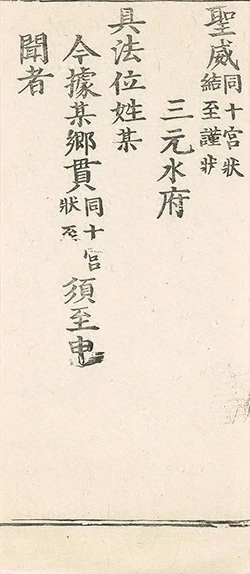 聖威同十宮狀結至謹狀
三元水府
具法位姓某
今據某鄉貫同十宮狀至須至申
聞者